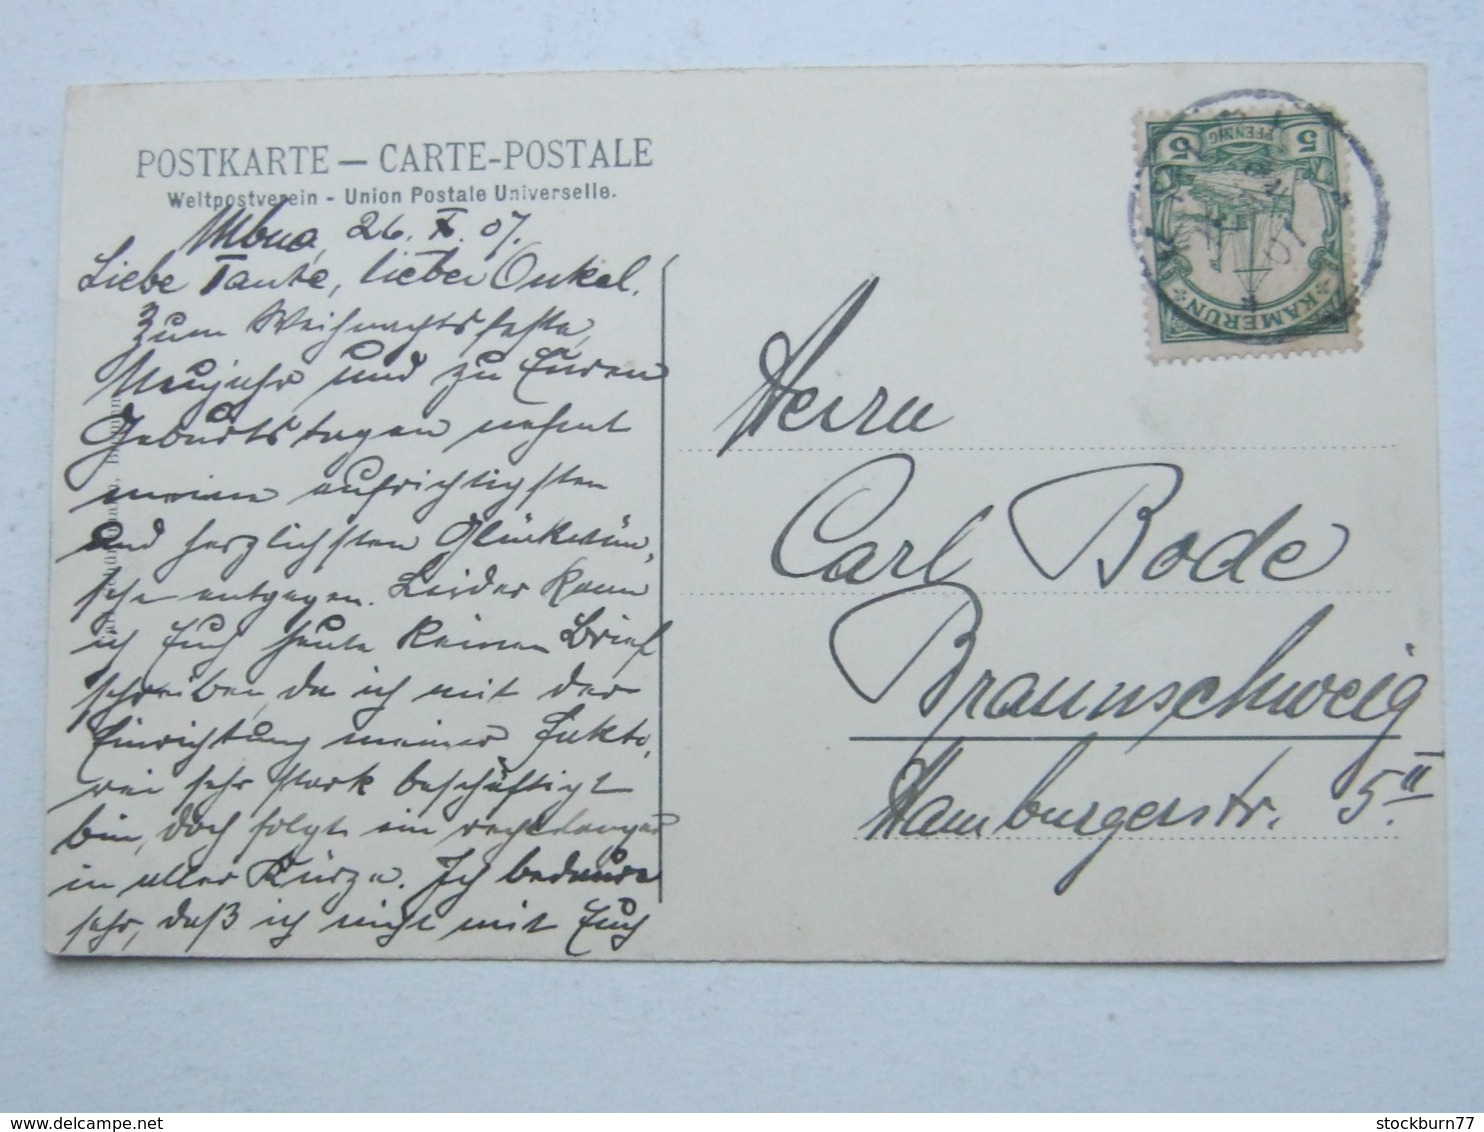 POSTKARTE — CARTE-POSTALE
Weltpostverein - Union Postale Universelle.
26. X. 07.
Liebe Tante, lieber Onkel.
Zum Weihnachtsfeste,
Neujahr und zu Euren
Geburtstagen nehmt
meine aufrichtigsten
und herzlichsten Glückwün-
sche entgegen. Leider kann
ich Euch heute keinen Brief
schreiben, da ich mit der
Einrichtung meiner Fakto-
rei sehr stark beschäftigt
bin, doch folgt ein recht langer
in aller Kürze. Ich bedaure
sehr, daß ich nicht mit Euch
5 PFENNIG 5
KAMERUN
Herrn
Carl Bode
Braunschweig
Hamburgerstr. 5 II
stockburn77